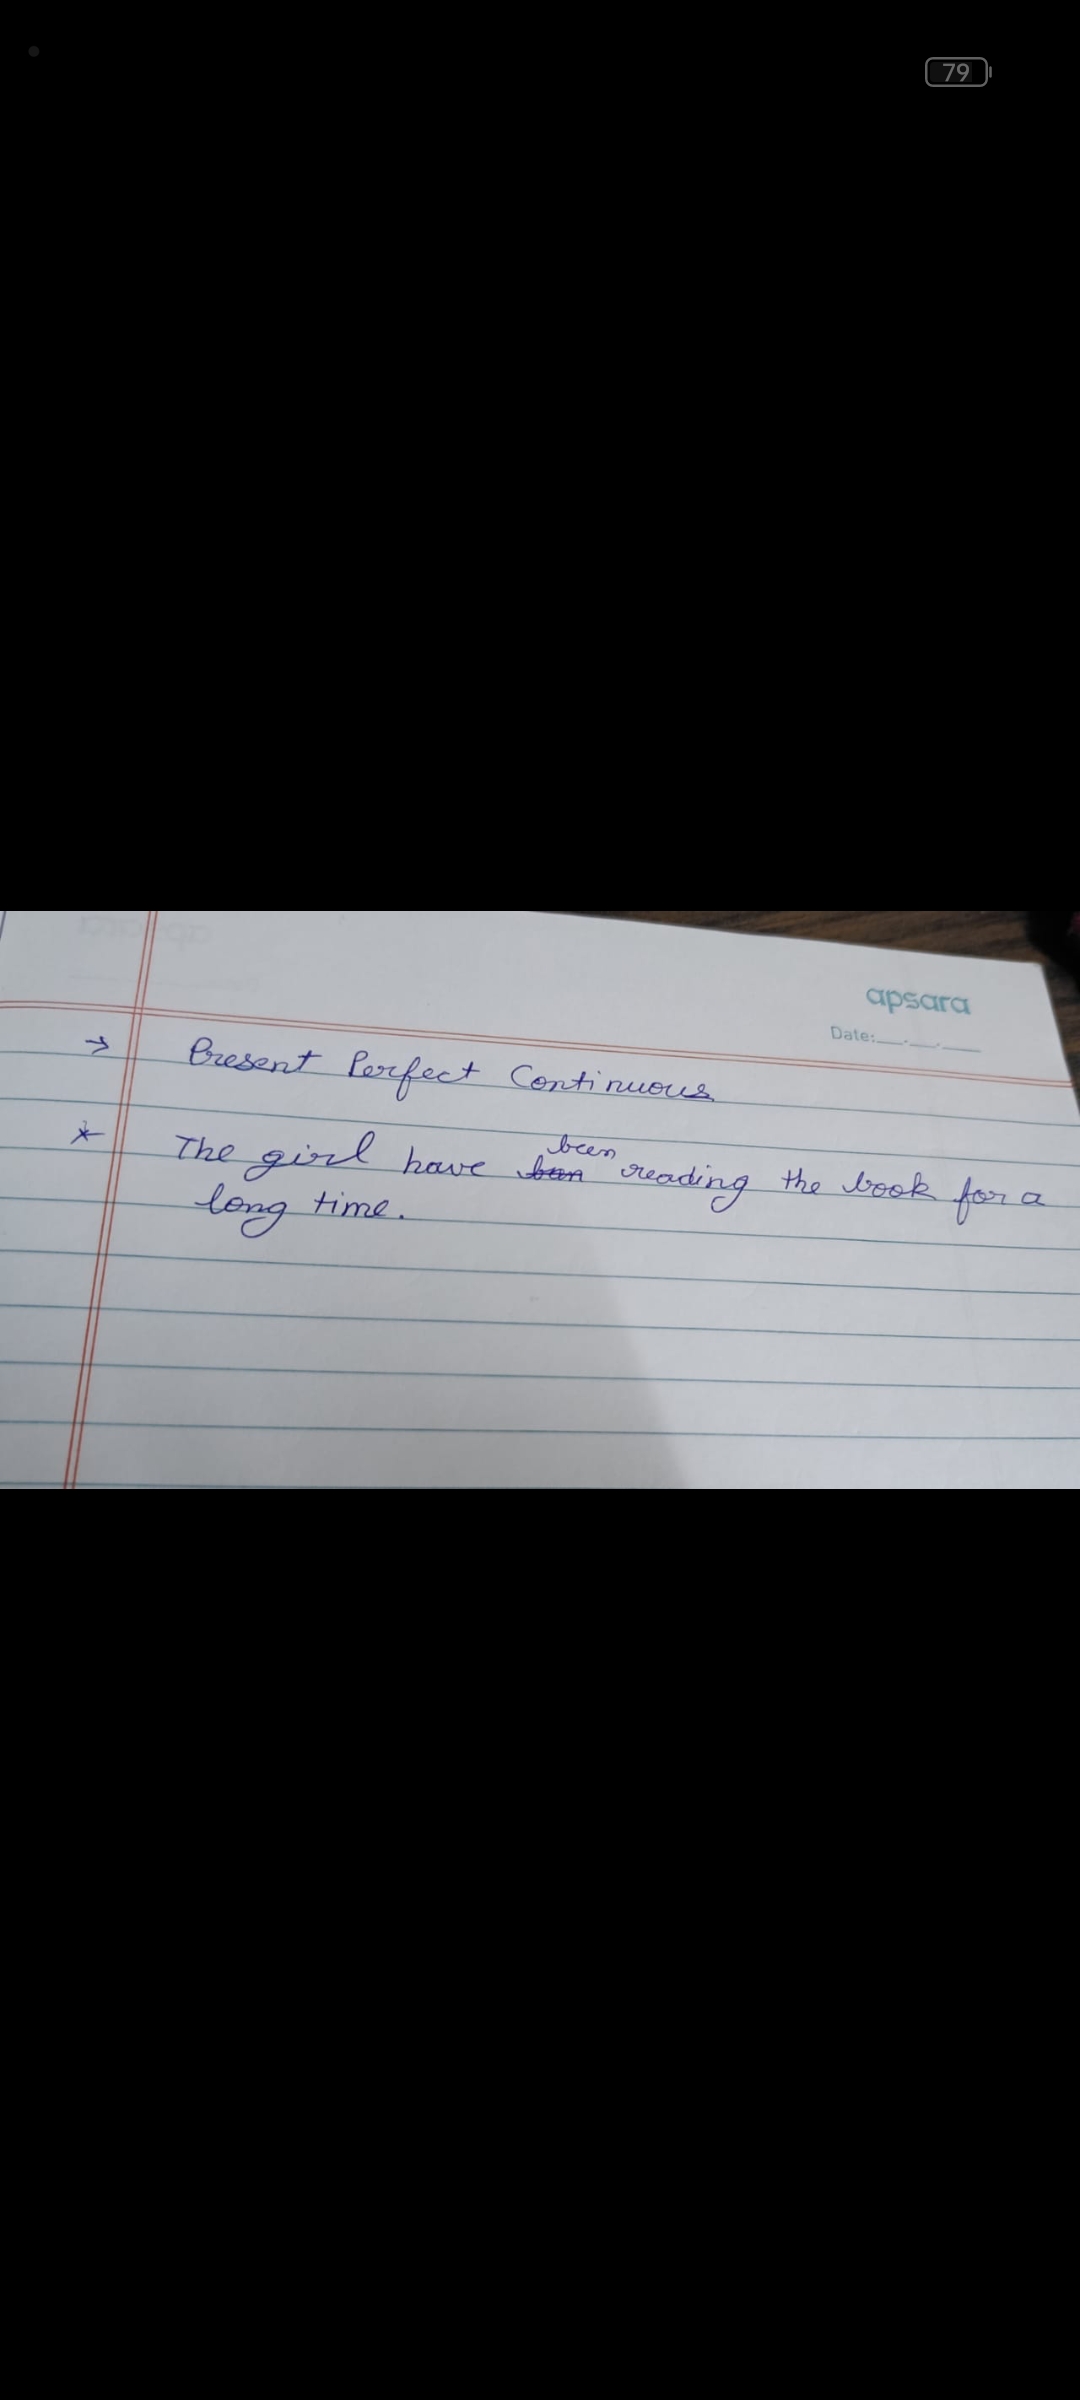 79
apsara
Date:__.__.__
→ Present Perfect Continuous
* The girl have ban been reading the book for a
long time.